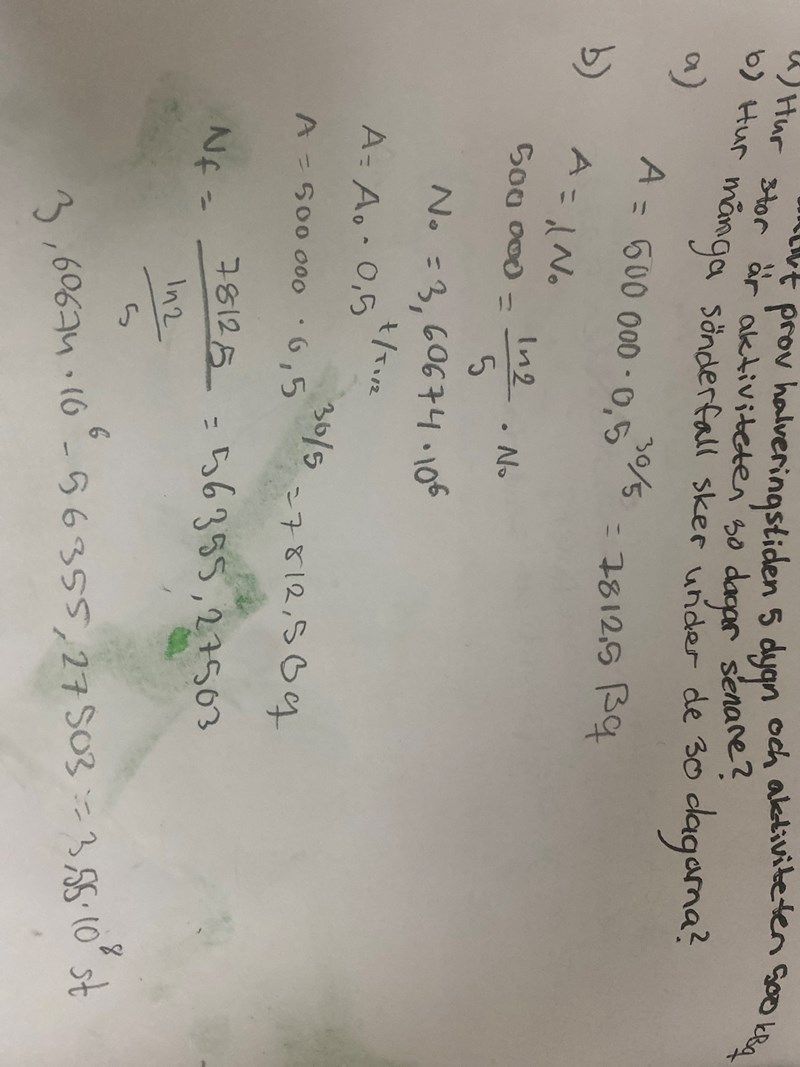 prov halveringstiden 5 dygn och aktiviteten 500 kBq
a) Hur stor är aktiviteten 30 dagar senare?
b) Hur många sönderfall sker under de 30 dagarna?
a)
A = 500 000 · 0,5^30/5 = 7812,5 Bq
b) A = λN₀
500 000 = ln2/5 · N₀
N₀ = 3,60674 · 10⁶
A = A₀ · 0,5^t/T1/2
A = 500 000 · 0,5^30/5 = 7812,5 Bq
Nf = 7812,5 / ln2/5 = 56355,27503
3,60674 · 10⁶ - 56355,27503 = 3,55 · 10⁸ st